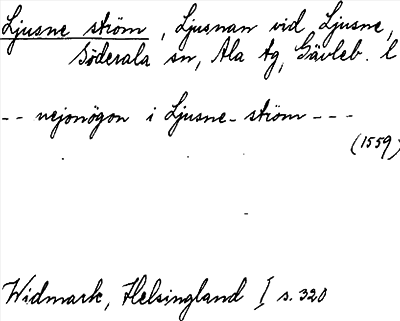 Ljusne ström, Ljusnan vid Ljusne,
Söderala sn, Ala tg, Gävleb. l
-- nejonögon i Ljusne-ström ---
(1559)
Widmark, Helsingland I s. 320